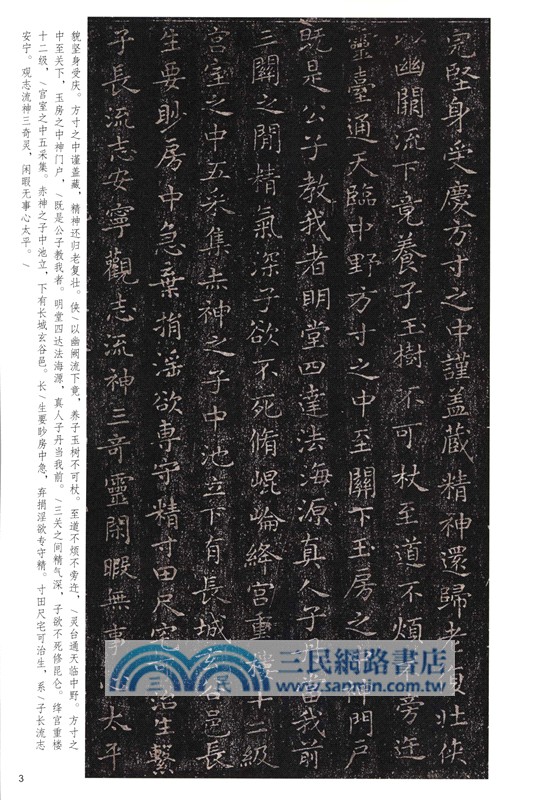 完堅身受慶方寸之中謹盖藏精神還歸老復壯侠
以幽闕流下竟養子玉樹不可杖至道不煩不旁迕
靈臺通天臨中野方寸之中至關下玉房之中神門戶
既是公子教我者明堂四達法海源真人子丹當我前
三關之間精氣深子欲不死脩崐崘絳宮重樓十二級
宮室之中五采集赤神之子中池立下有長城玄谷邑長
生要眇房中急棄捐淫欲専守精寸田尺宅可治生繫
子長流志安寧觀志流神三奇靈閑暇無事心太平
貌坚身受庆。方寸之中谨盖藏，精神还归老复壮。侠/以幽阙流下竟，养子玉树不可杖。至道不烦不旁迕，/灵台通天临中野。方寸之
中至关下，玉房之中神门户，/既是公子教我者。明堂四达法海源，真人子丹当我前。/三关之间精气深，子欲不死修昆仑。绛宫重楼
十二级，/宫室之中五采集。赤神之子中池立，下有长城玄谷邑。长/生要眇房中急，弃捐淫欲专守精。寸田尺宅可治生，系/子长流志
安宁。观志流神三奇灵，闲暇无事心太平。/
三民網路書店
www.sanmin.com.tw
3